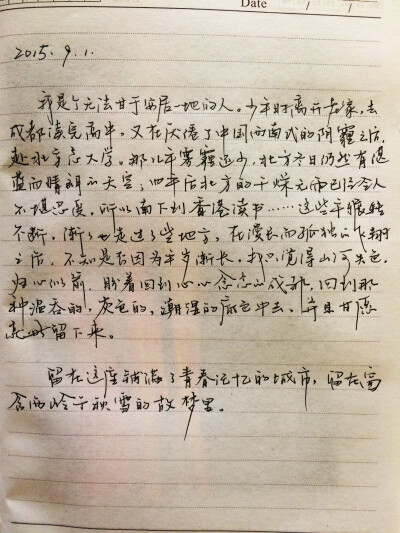 Date / /
2015.9.1.
我是个无法甘于安居一地的人。少年时离开老家，去
成都读完高中，又在厌倦了中国西南式的阴霾之后，
赴北方念大学。那几年雾霾还少，北方冬日仍然有湛
蓝而晴朗的天空；四年后北方的干燥无雨已经令人
不堪忍度，所以南下到香港读书……这些年辗转
不断，渐渐也走过了些地方，在漫长而孤独的飞翔
之后，不知是否因为年岁渐长，我只觉得山河失色，
归心似箭，盼着回到心心念念的成都，回到那
种温吞的，灰色的，潮湿的底色中去。并且甘愿
就此留下来。
留在这座铺满了青春记忆的城市，留在窗
含西岭千秋雪的故梦里。